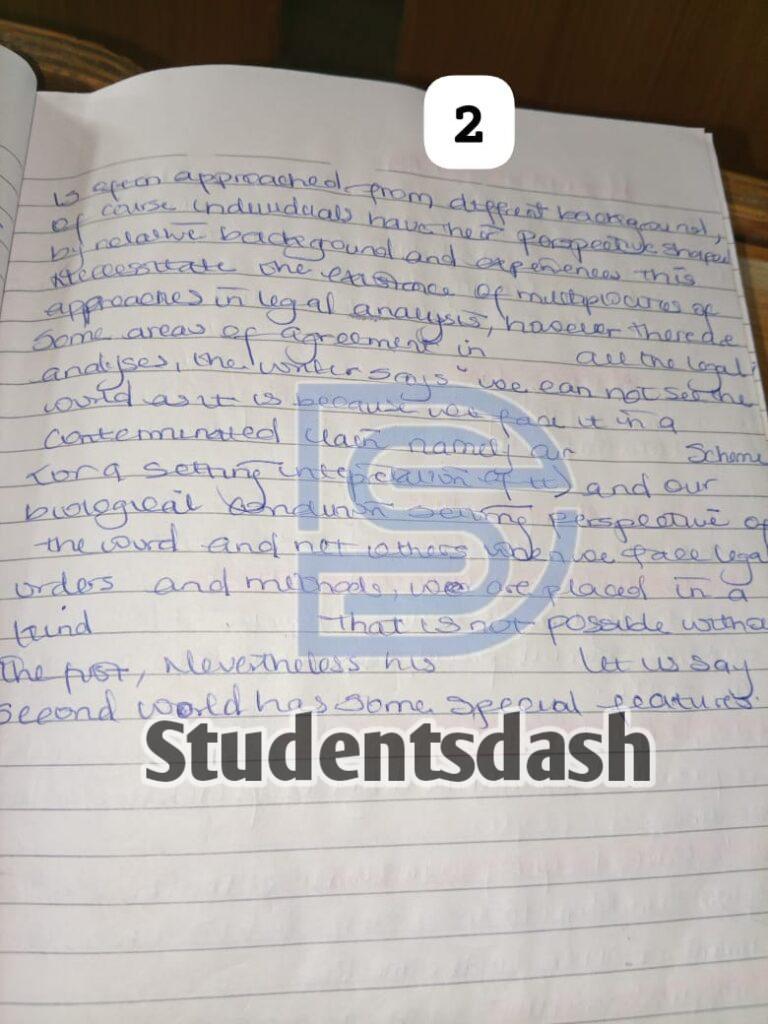 2
is often approached from different background,
of course individuals have their perspective shaped
by relative background and experiences this
necessitate the existence of multiplicities of
approaches in legal analysis, however there are
some areas of agreement in all the legal
analyses, the writer says "we can not see the
world as it is because we face it in a
conterminated claim namely an Scheme
(or a setting interpretation of it) and our
biological condition seeing perspective of
the word and not others when we face legal
orders and methods, we are placed in a
kind that is not possible witho
the first, Nevertheless his let us say
second world has some special features.
Studentsdash